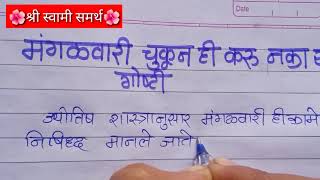 🌺श्री स्वामी समर्थ🌺
मंगळवारी चुकून ही करू नका ह
गोष्टी
ज्योतिष शास्त्रानुसार मंगळवारी ही कामे
निषिध्द मानले जाते